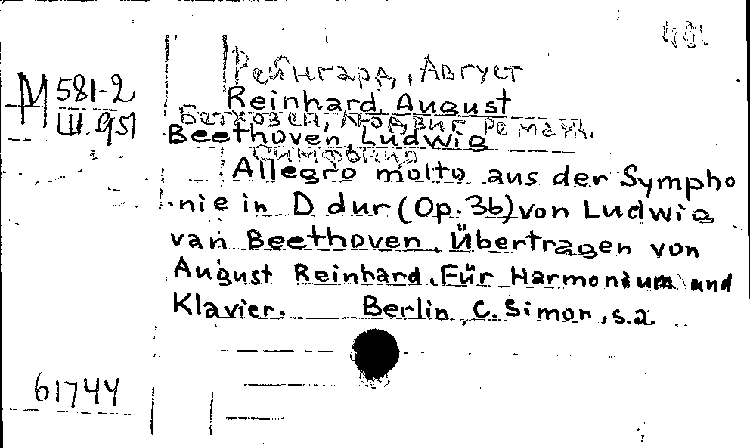 Рейнгард, Август
М 581-2
III.951
Reinhard August
Бетховен, Людвиг
Beethoven Ludwig
Симфония
Allegro molto aus der Sympho
nie in D dur (Op. 36) von Ludwig
van Beethoven. Übertragen von
August Reinhard. Für Harmonium und
Klavier. Berlin, C. Simon, s.a.
61744